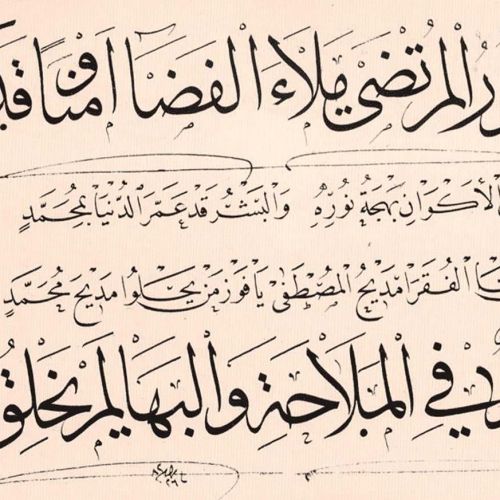 المرتضى ملاء الفضا امنا وقد
الأكوان بهجة نوره والبشر قد عمر الدنيا بمحمد
الفقرا مديح المصطفى يا فوز من يحلوا مديح محمد
في الملاحة والبها لم يخلق